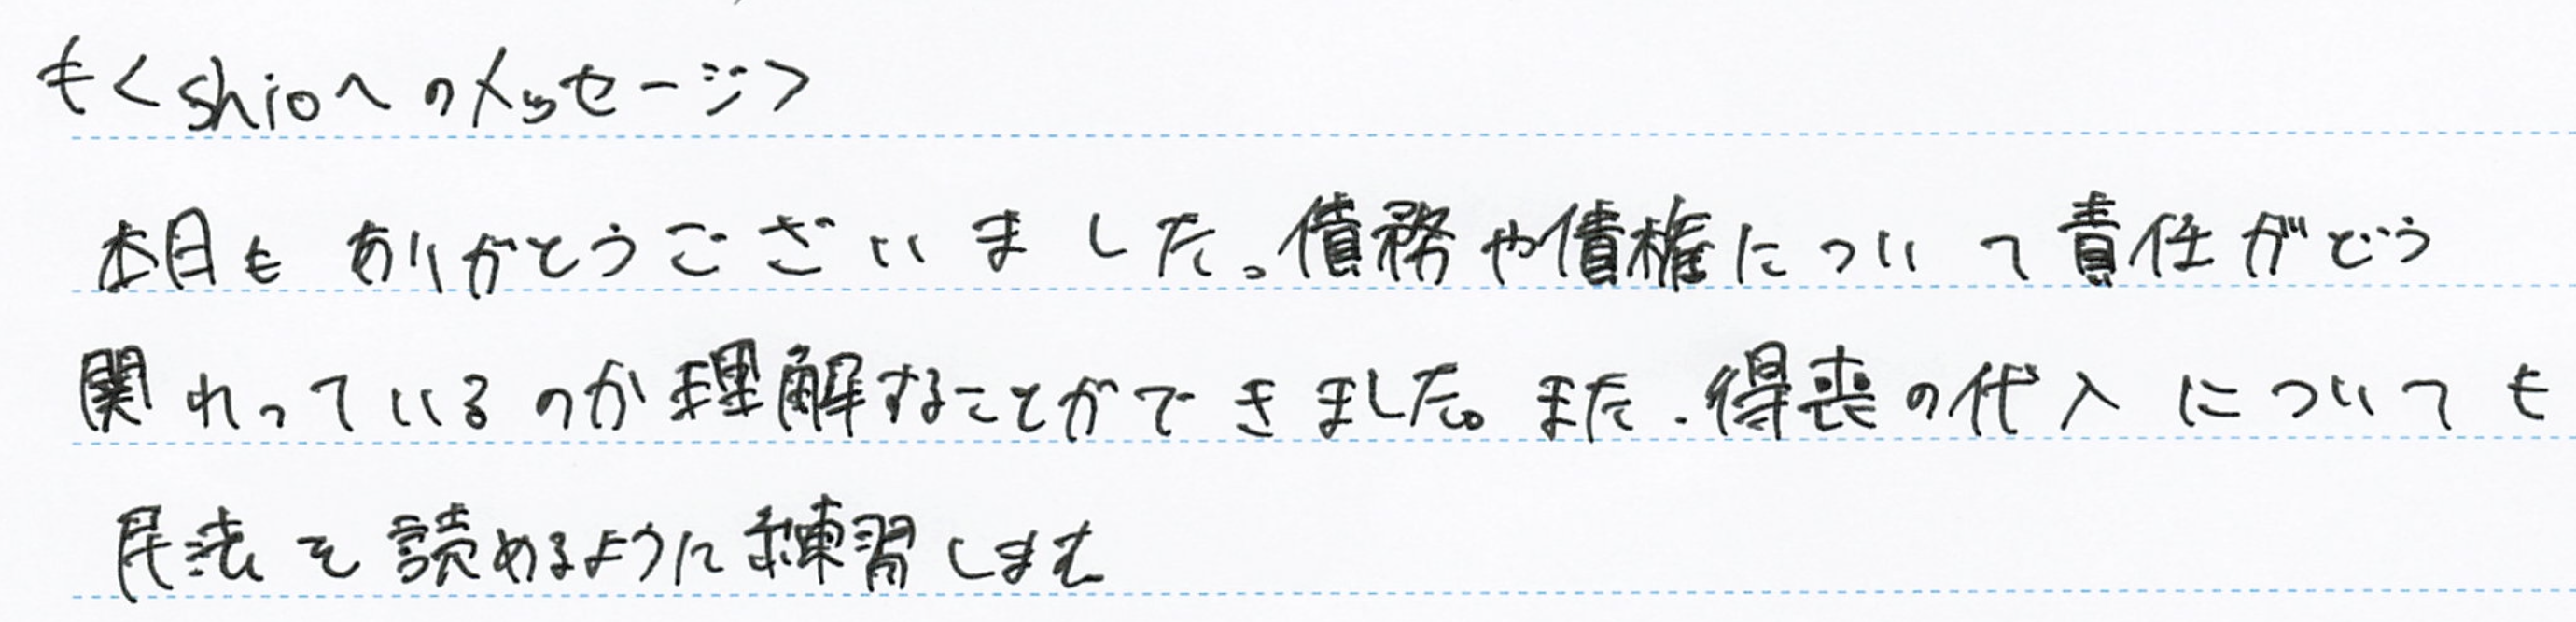 も<shioへのメッセージ>
本日も ありがとうございました。債務や債権について責任がどう
関わっているのか理解することができました。また、得喪の代入についても
民法を読めるように練習します